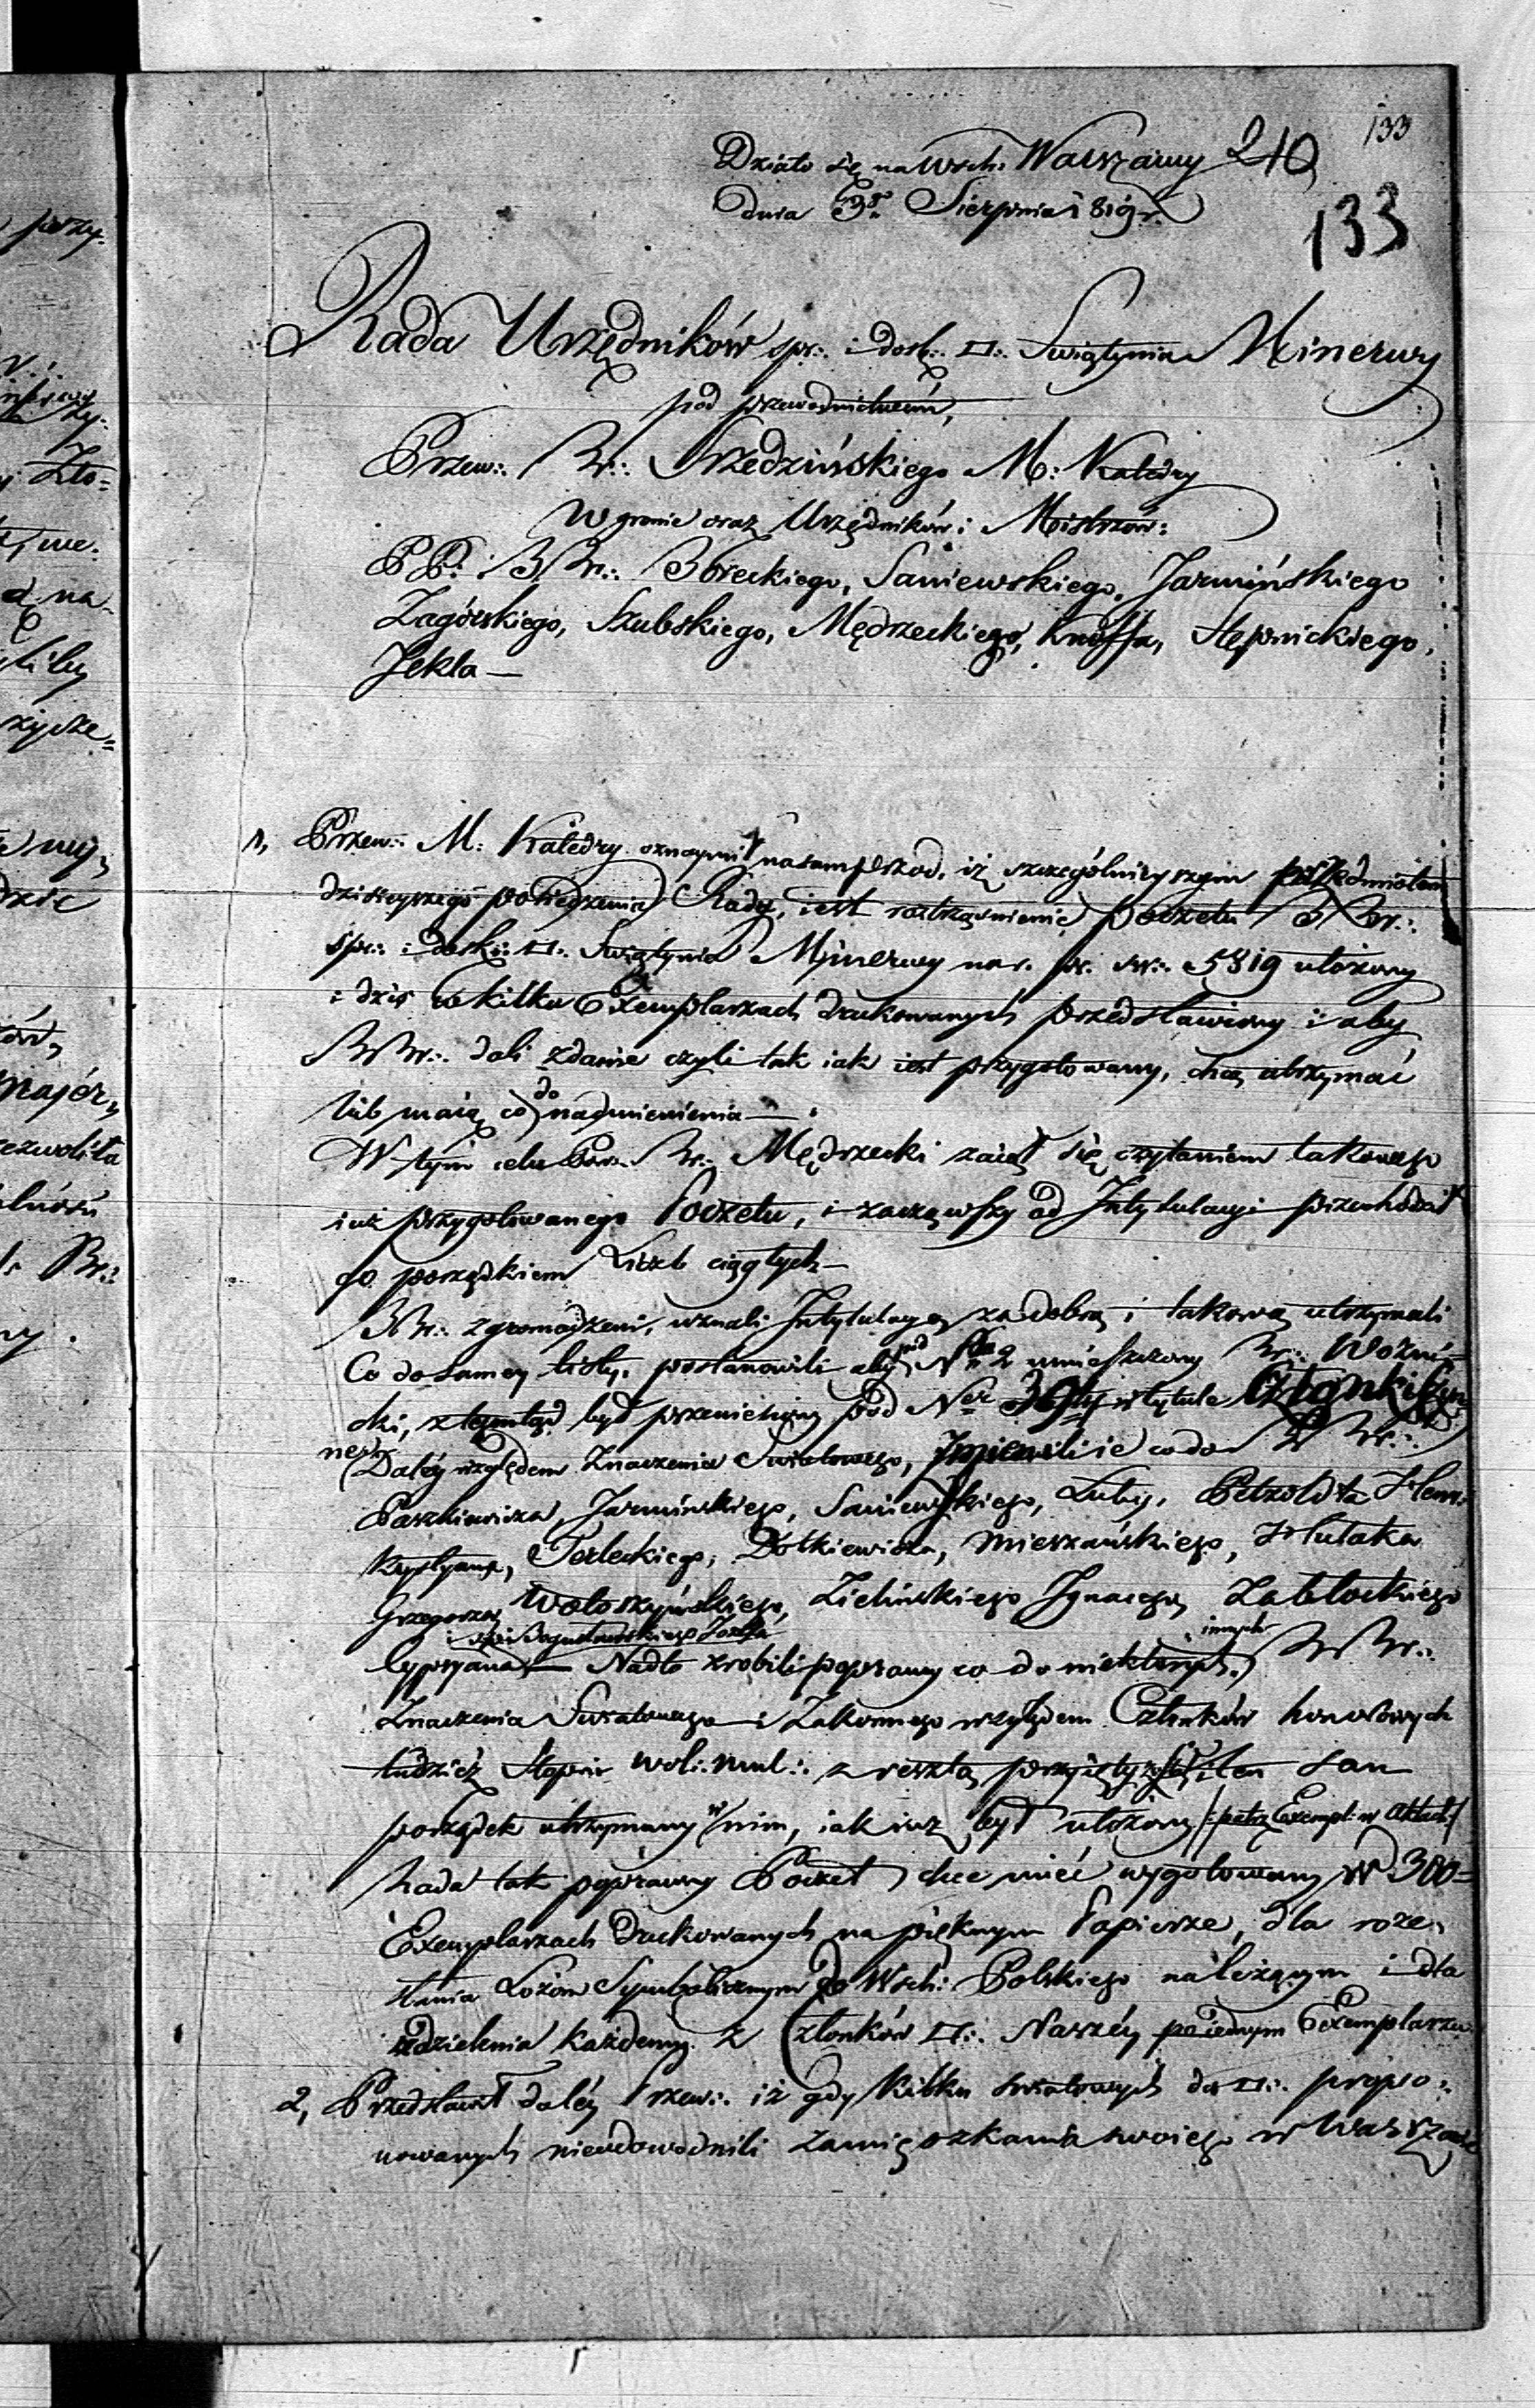 133
Działo się na Wsch: Warszawy 240
dnia 3º Sierpnia 1819 r.
133
Rada Urzędników spr:. i dosk:. □:. Swiątynia Minerwy
pod przewodnictwem,
Przew:. Br:. Srzedzińskiego M: Katedry
W gronie oraz Urzędników i Mistrzów:
PP: BBr:. Saniewskiego, Jarmińskiego
Zagórskiego, Szubskiego, Mędrzeckiego, Knoffa, Stępnickiego,
Jekla —
1, Przew:. M: Katedry oznaymił nasamprzod, iż szczególnieyszym przedmiotem
dzisieyszego posiedzenia Rady, iest roztrząśnienie pocztu BBr:.
spr:. i dosk:. □:. Swiątynia Minerwy na r. pr. sw:. 5819 ułożony
i dziś w kilku Exemplarzach drukowanych przedstawiony i aby
BBr:. dali zdanie czyli tak iak iest przygotowany, chcą utrzymać
lub maią co do nadmienienia —
W tym celu Br:. Mędrzecki zaiął się czytaniem takowego
iuż przygotowanego Pocztu, i zacząwszy od Intytulacyi przechodził
go porządkiem Liczb ciągłych —
BBr:. zgromadzeni, uznali Intytulacyą za dobrą i takową utrzymali
Co do samey listy, postanowili aby pod Nrem 2 umieszczony Br:. Woźni=
cki, z tamtąd był przeniesiony pod Ner 39ty w tytule Członki
Daléy względem Znaczenia Swiatowego, zmienili ie co do BBr:.
Paszkiewicza, Jarmińskiego, Saniewskiego, Luby, Petzoldta Hen:
Krystyana, Terleckiego, Dołkiewicza, Mieszańskiego, Hulaka
Grzegorza, Wołoszyńskiego, Zielińskiego Ignacego, Zabłockiego
i Bogusławskiego Józefa
Cypryana — Nadto zrobili poprawy co do niektorych innych BBr:.
Znaczenia Swiatowego i Zakonnego względem Członków honorowych
tudzież Stopni wol: mul:. z resztą ten sam
porządek utrzymany w nim, iak iuż był ułożony / patrz Exempl: w Aktach /
Rada tak poprawny Poczet chce mieć wygotowany w 300=
Exemplarzach drukowanych na pięknym Papierze, dla roze=
słania Lożom Symbolicznym do Wsch: Polskiego należącym i dla
udzielenia każdemu z Członków □:. Naszéy po iednym Exemplarzu.
2, Przedstawił daléy Przew:. iż gdy kilku swiatowych do □:. propo=
nowanych nieudowodnili zamięszkania swoiego w Warszawie